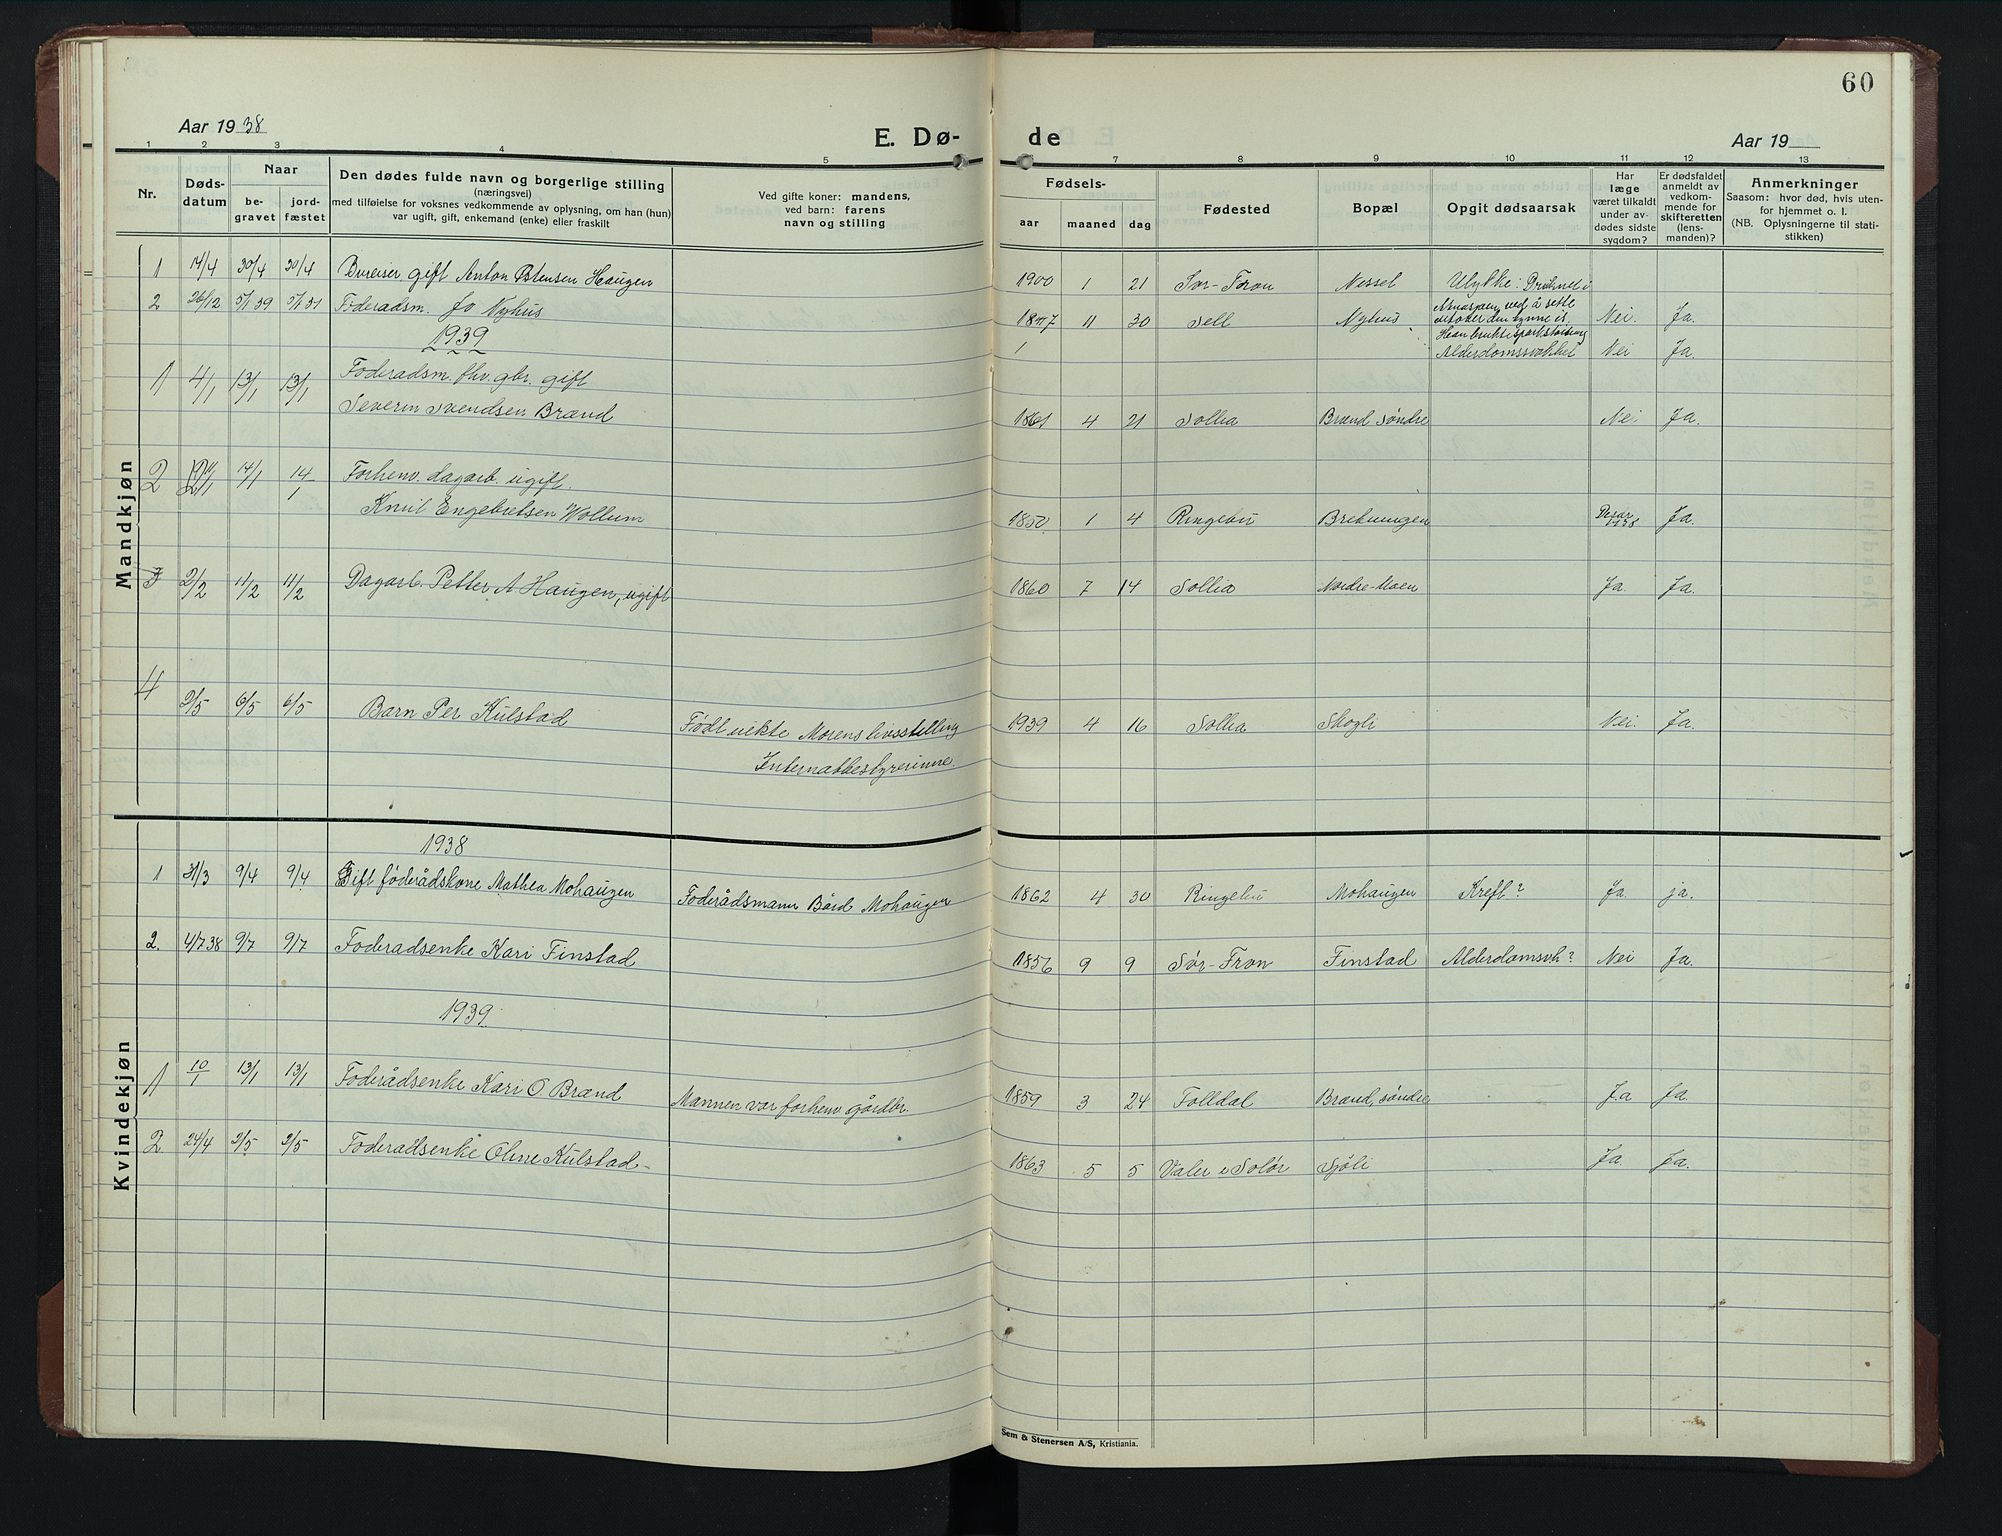 60
Aar 1938
E. Dø-
de
Aar 19
1 2 3 4 5
7 8 9 10 11 12 13
Nr.
Døds-
datum
Naar
be-
gravet
jord-
fæstet
Den dødes fulde navn og borgerlige stilling
(næringsvei)
med tilføielse for voksnes vedkommende av oplysning, om han (hun)
var ugift, gift, enkemand (enke) eller fraskilt
Ved gifte koner: mandens,
ved barn: farens
navn og stilling
Fødsels-
aar maaned dag
Fødested
Bopæl
Opgit dødsaarsak
Har
læge
været tilkaldt
under av-
dødes sidste
sygdom?
Er dødsfaldet
anmeldt av
vedkom-
mende for
skifteretten
(lens-
manden)?
Anmerkninger
Saasom: hvor død, hvis uten-
for hjemmet o. l.
(NB. Oplysningerne til stati-
stikken)
Mandkjøn
1 14/4 30/4 30/4 Bureiser, gift Anton Østensen Haugen 1900 1 21 Sør-Fron Nessel Ulykke: Druknet i
2 26/12 5/1 39 5/1 39 Føderadsm. Jo Nyhus 11 30 Sell Nyhus Nei. Ja.
Alderdomssvakhet Nei Ja.
1939
1 4/1 13/1 13/1 Føderadsm. fhv. gbr. gift
Severin Svendsen Brænd 1861 4 21 Sollia Brænd søndre Nei. Ja.
2 14/1 14/1 Forhenv. dagarb. ugift.
Knut Engebretsen Wollum 1850 1 4 Ringebu Bretningen Ja.
3 2/2 11/2 11/2 Dagarb. Petter A Haugen, ugift 1860 7 14 Sollia Nordre-Moen Ja. Ja.
4 2/5 6/5 6/5 Barn Per Kulstad Født uekte Morens livsstilling 1939 4 16 Sollia Skogli Nei. Ja.
Internatbestyrerinne.
Kvindekjøn
1938
1 31/3 9/4 9/4 Gift føderådskone Mathea Mohaugen Føderådsmann Bård Mohaugen 1862 4 30 Ringebu Mohaugen Kreft? Ja. ja.
2. 4/7 38 9/7 9/7 Føderadsenke Kari Finstad 1856 9 9 Sør-Fron Finstad Alderdomsvh? Nei Ja.
1939
1 10/1 13/1 13/1 Føderådsenke Kari O. Brænd Mannen var forhenv gårdbr. 1859 3 24 Folldal Brænd, søndre Ja Ja
2 24/4 2/5 2/5 Føderadsenke Oline Kulstad - 1863 5 5 Våler i Solør Sjøli Ja. Ja.
Sem & Stenersen A/S, Kristiania.